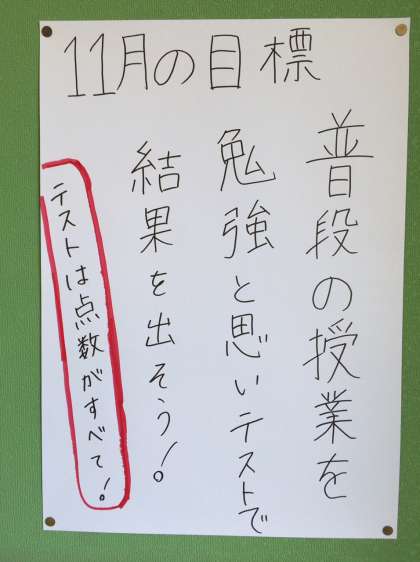 11月の目標
普段の授業を
勉強と思いテストで
結果を出そう!
テストは点数がすべて!